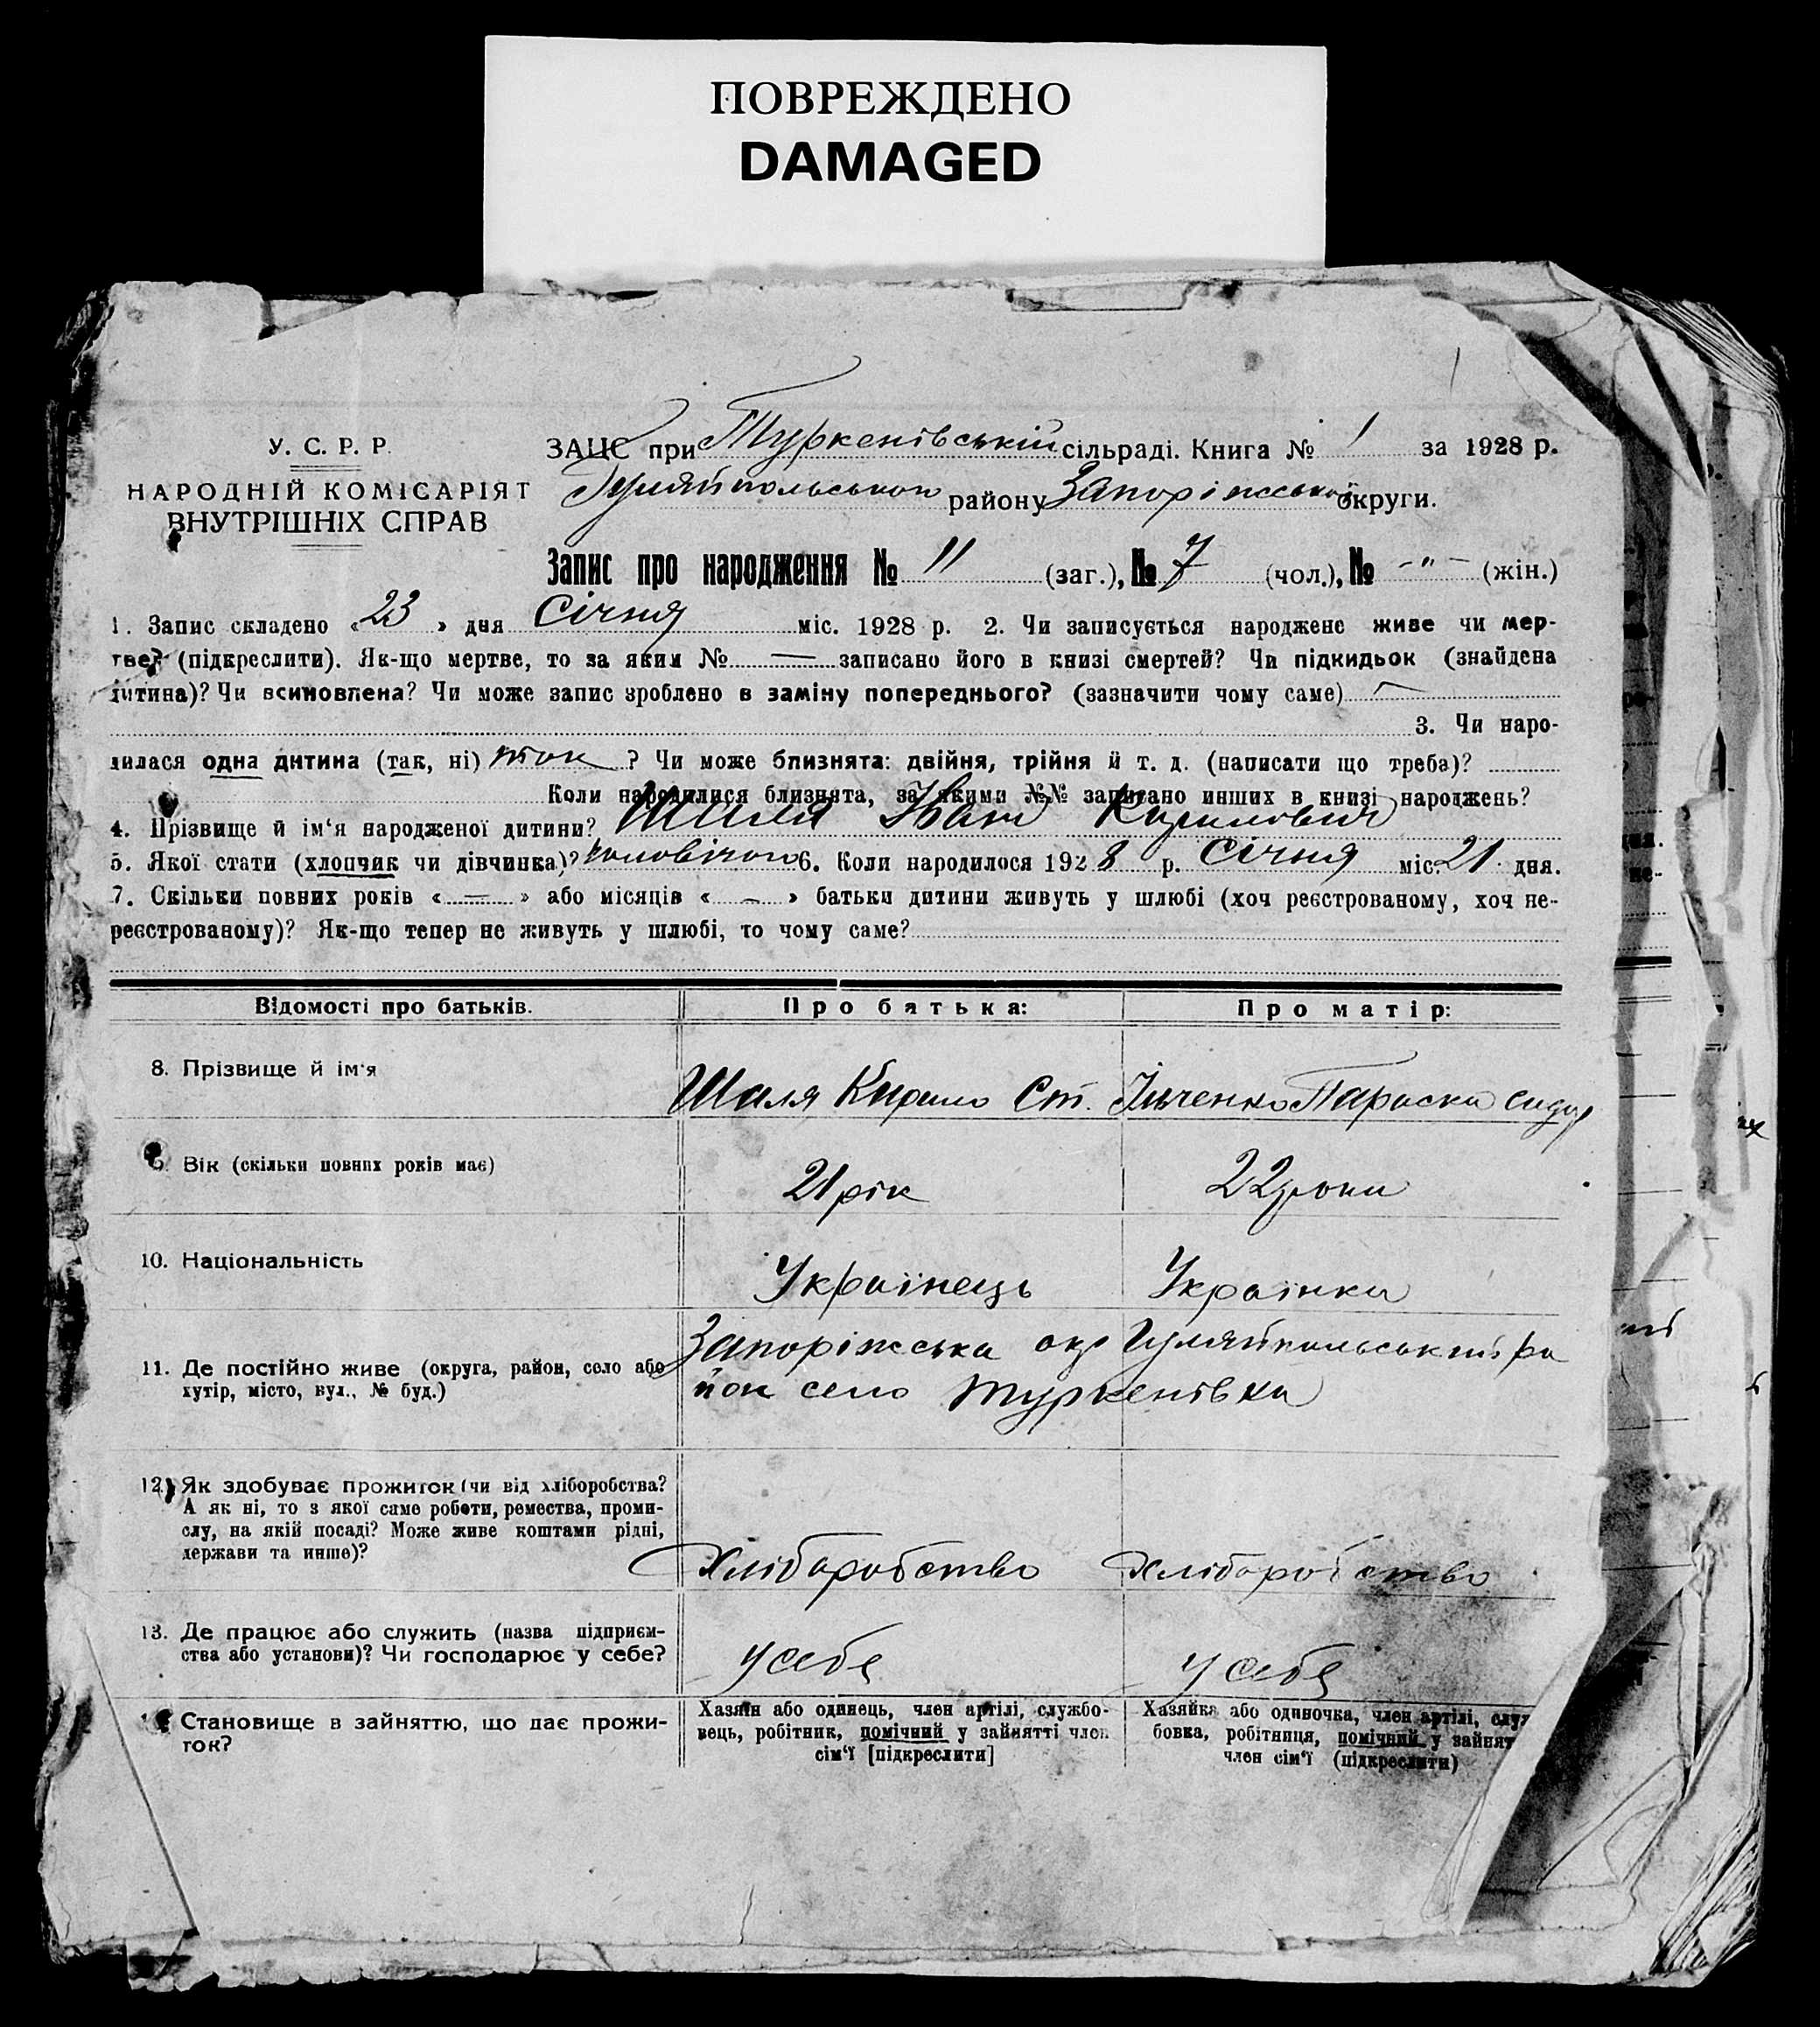 ПОВРЕЖДЕНО
DAMAGED
У. С. Р. Р.
НАРОДНІЙ КОМІСАРІЯТ
ВНУТРІШНІХ СПРАВ
ЗАЦС при Туркенівській сільраді. Книга № 1 за 1928 р.
Гуляйпольського району Запоріжської округи.
Запис про народження № 11 (заг.), № 7 (чол.), № -"- (жін.)
1. Запис складено «23» дня Січня міс. 1928 р. 2. Чи записується народжене живе чи мер-
тве? (підкреслити). Як-що мертве, то за яким № — записано його в книзі смертей? Чи підкидьок (знайдена
дитина)? Чи всиновлена? Чи може запис зроблено в заміну попереднього? (зазначити чому саме)
3. Чи наро-
дилася одна дитина (так, ні) так ? Чи може близнята: двійня, трійня й т. д. (написати що треба)?
Коли народилися близнята, за якими №№ записано инших в книзі народжень?
4. Прізвище й ім‘я народженої дитини? Шаля Іван Кирилович
5. Якої стати (хлопчик чи дівчинка)? чоловічого 6. Коли народилося 1928 р. Січня міс. 21 дня.
7. Скільки повних років « — » або місяців « — » батьки дитини живуть у шлюбі (хоч реєстрованому, хоч не-
реєстрованому)? Як-що тепер не живуть у шлюбі, то чому саме?
Відомості про батьків. Про батька: Про матір:
8. Прізвище й ім‘я Шаля Кирило Ст. Ільченко Параска Сидор
9. Вік (скільки повних років має) 21 рік 22 роки
10. Національність Українець Українка
11. Де постійно живе (округа, район, село або
хутір, місто, вул., № буд.)
Запоріжська окр Гуляйпольський ра
йон село Туркенівка
12. Як здобуває прожиток (чи від хліборобства?
А як ні, то з якої саме роботи, ремества, проми-
слу, на якій посаді? Може живе коштами рідні,
держави та инше)?
Хліборобство Хліборобство
13. Де працює або служить (назва підприєм-
ства або установи)? Чи господарює у себе?
у себе у себе
Становище в зайняттю, що дає прожи-
ток?
Хазяїн або одинець, член артілі, службо-
вець, робітник, помічний у зайнятті член
сім‘ї [підкреслити]
Хазяйка або одиночка, член артілі, служ
бовка, робітниця, помічний у зайнят
член сім‘ї (підкреслити)